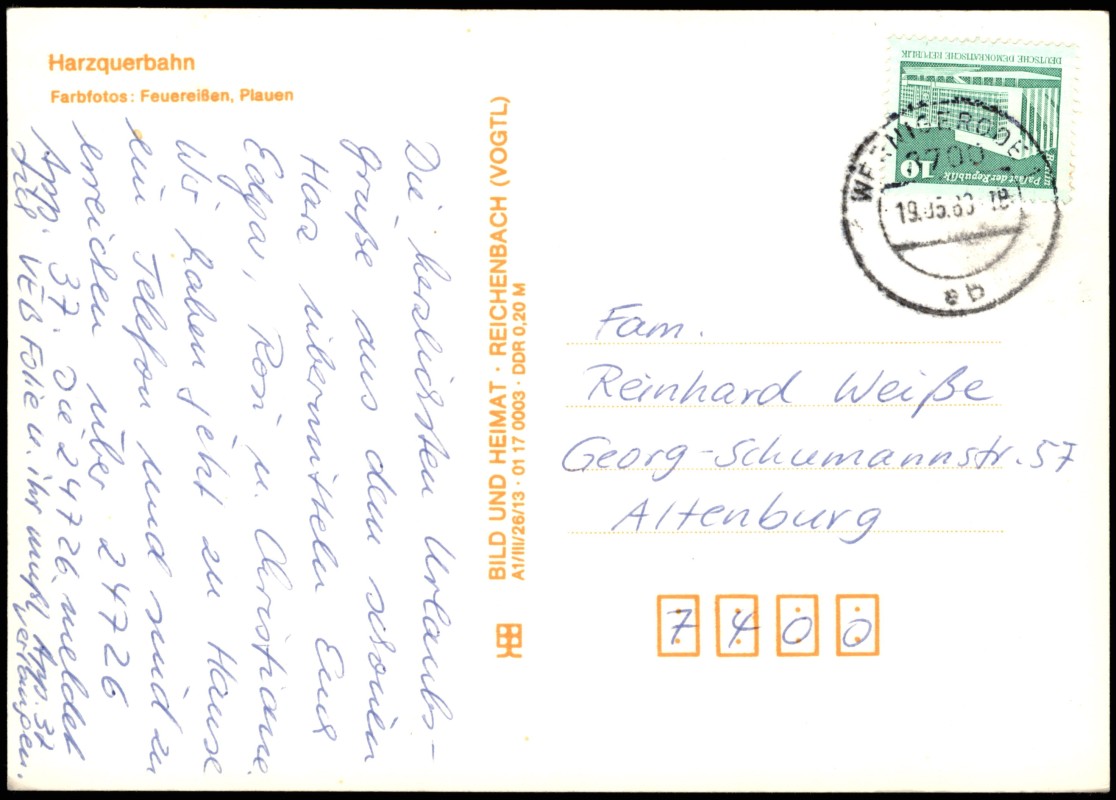 Harzquerbahn
Farbfotos: Feuereißen, Plauen
Die herzlichsten Urlaubs-
grüße aus dem schönen
Harz übermitteln Euch
Edgar, Rosi u. Christiane.
Wir haben jetzt zu Hause
ein Telefon und sind zu
erreichen über 24726
App. 37. Die 24726 meldet
sich VEB Folie u. ihr müßt App. 37
verlangen.
BILD UND HEIMAT · REICHENBACH (VOGTL)
A1/III/26/13 · 01 17 0003 · DDR 0,20 M
DEUTSCHE DEMOKRATISCHE REPUBLIK
Berlin
Palast der Republik
10
WERNIGERODE 1
3700
19.05.83-18
qa
Fam.
Reinhard Weiße
Georg-Schumannstr. 57
Altenburg
7400